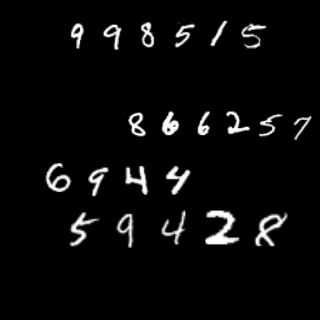 998515
866257
6944
59428